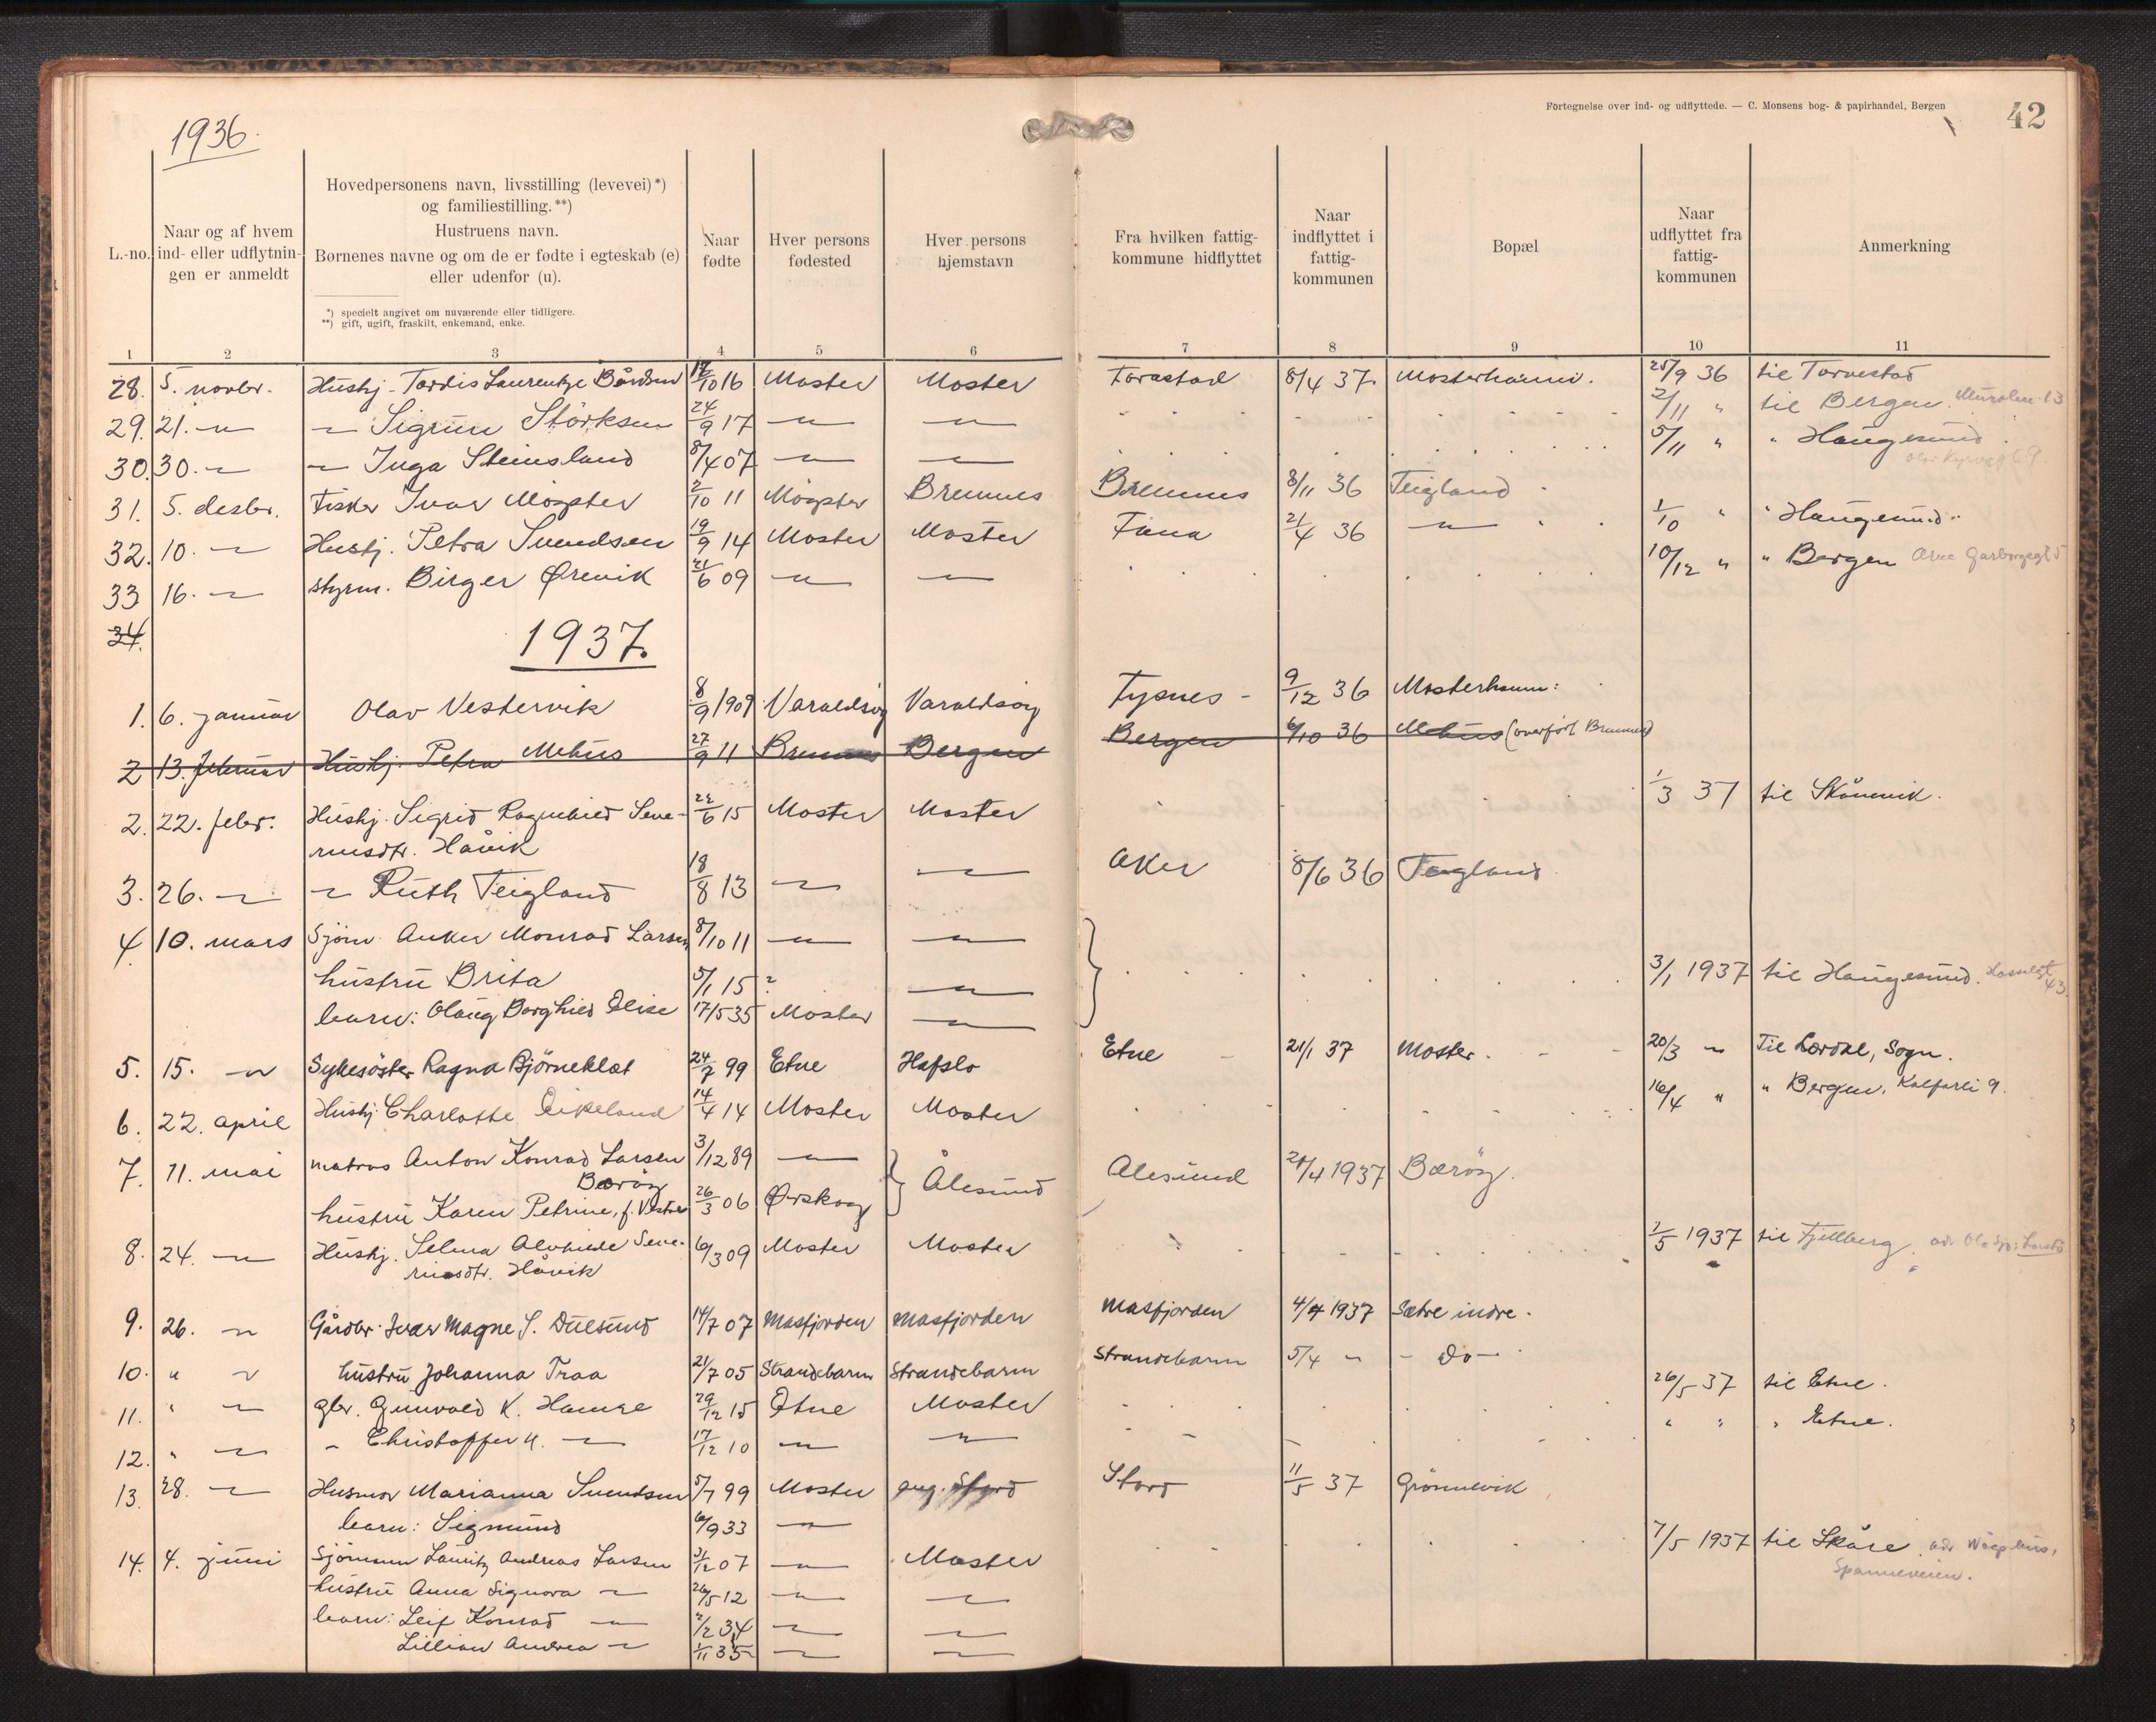 1936.
Fortegnelse over ind- og udflyttede. — C. Monsens bog- & papirhandel, Bergen
42
L.-no.
Naar og af hvem
ind- eller udflytnin-
gen er anmeldt
Hovedpersonens navn, livsstilling (levevei)*)
og familiestilling.**)
Hustruens navn.
Børnenes navne og om de er fødte i egteskab (e)
eller udenfor (u).
*) specielt angivet om nuværende eller tidligere.
**) gift, ugift, fraskilt, enkemand, enke.
Naar
fødte
Hver persons
fødested
Hver persons
hjemstavn
Fra hvilken fattig-
kommune hidflyttet
Naar
indflyttet i
fattig-
kommunen
Bopæl
Naar
udflyttet fra
fattig-
kommunen
Anmerkning
1 2 3 4 5 6 7 8 9 10 11
28. 5. novbr. Hushj. Tordis Laurentze Bårdsen 17/10 16 Moster Moster Torastad 8/4 37. Mosterhamn. 25/9 36 til Torvestad
29. 21. — — Sigrun Störksen 24/9 17 — — 2/11 " til Bergen.
30. 30. — — Inga Steinsland 8/4 07 — — 5/11 " " Haugesund
31. 5. desbr. Fisker Ivar Mögster 2/10 11 Mögster Bremnes Bremnes 8/11 36 Teigland
32. 10. — Hushj. Petra Svendsen 19/9 14 Moster Moster Fana 21/4 36 — 1/10 " " Haugesund.
33 16. — styrm. Birger Ørevik 21/6 09 — — 10/12 " " Bergen Arne Garborgsgt 5
34.
1937.
1. 6. januar Olav Vestervik 8/9 1909 Varaldsöy Varaldsöy Tysnes - 9/12 36 Mosterhamn:
2 13. februar Hushj. Petra Mehus 27/9 11 Bremnes Bergen Bergen 6/10 36 Mehus (overfört Bremnes)
2. 22. febr. Hushj. Sigrid Ragnhild Seve- 22/6 15 Moster Moster 1/3 37 til Skånevik.
rinsdtr. Håvik
3. 26. — — Ruth Teigland 18/8 13 — — Aker 8/6 36 Teigland
4 10. mars Sjöm. Anker Monrad Larsen 8/10 11 — —
hustru Brita 5/1 15 ? — 3/1 1937 til Haugesund.
barn: Olaug Borghild Elise 17/5 35 Moster —
5. 15. — Sykesöster Ragna Björneklet 24/7 99 Etne Hafslo Etne - 21/1 37 Moster. - - 20/3 — Til Lærdal, Sogn.
6. 22. april Hushj. Charlotte Eikeland 14/4 14 Moster Moster 16/4 " " Bergen, Kalfarli 9.
7. 11. mai matros Anton Konrad Larsen 3/12 89 — Ålesund Alesund 28/4 1937 Bæröy.
Bæröy
hustru Karen Petrine, f. 26/3 06 Ørskog
8. 24. — Hushj. Selma Alvhilde Seve- 6/3 09 Moster Moster 1/5 1937 til Fjellberg.
rinsdtr. Håvik
9. 26. — Gårdbr. Ivar Magne S. Duesund 14/7 07 Masfjorden Masfjorden Masfjorden 4/4 1937 Sætre indre.
10. " — hustru Johanna Traa 21/7 05 Strandebarm Strandebarm Strandebarm 5/4 — - Do -
11. " — gbr. Gunvald K. Hamre 29/12 15 Etne Moster 26/5 37 til Etne.
12. " — - Christoffer K. — 17/12 10 — — " " " Etne.
13. 28. — Husmor Marianna Svendsen 5/7 99 Moster Stord Stord 11/5 37 Grönnevik
barn: Sigmund 6/9 33 —
14. 4. juni Sjömann Lauritz Andreas Larsen 31/12 07 — Moster 7/5 1937 til Skåre.
Spanneveien.
hustru Anna Signora — 26/5 12 — —
barn: Leif Konrad — 2/2 34 — —
Lillian Andrea — 1/11 35 — —